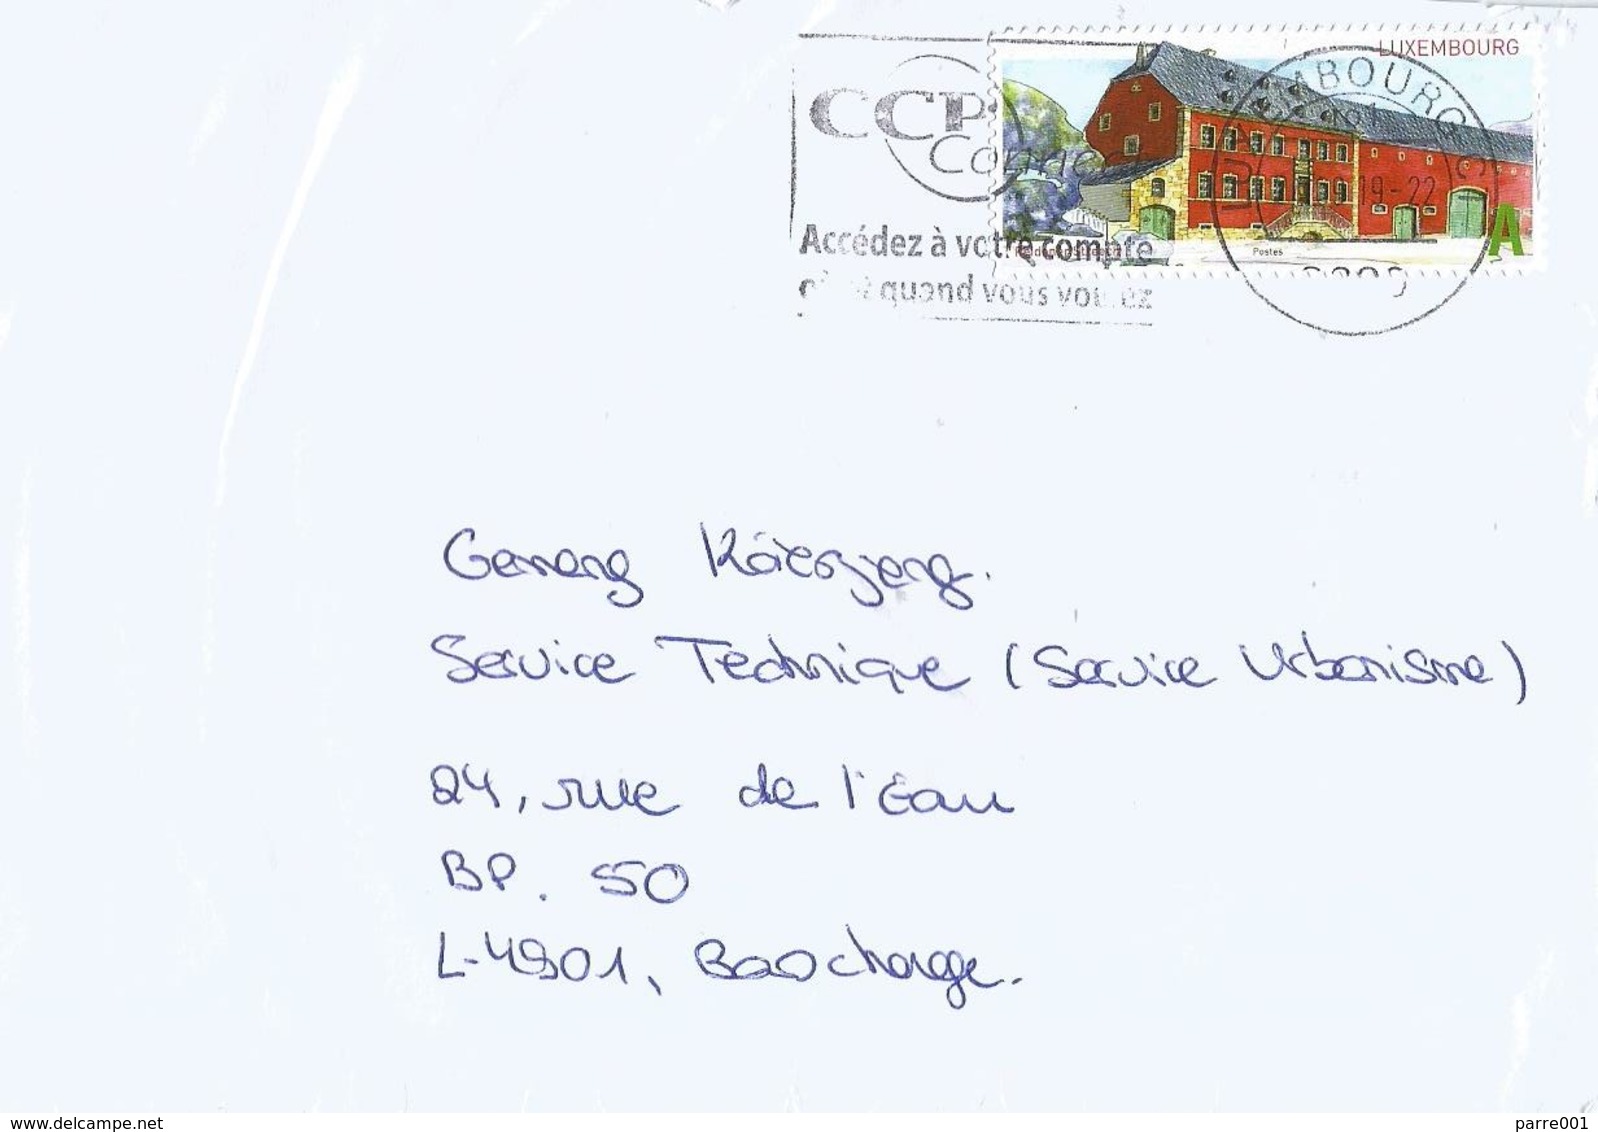 LUXEMBOURG
CCP
Connect
Accédez à votre compte
quand vous voulez
19-22
Postes
A
Gemeng Käerjeng.
Service Technique (Service Urbanisme)
24, rue de l'Eau
BP. 50
L-4901, Bascharage.
delcampe.net
parre001